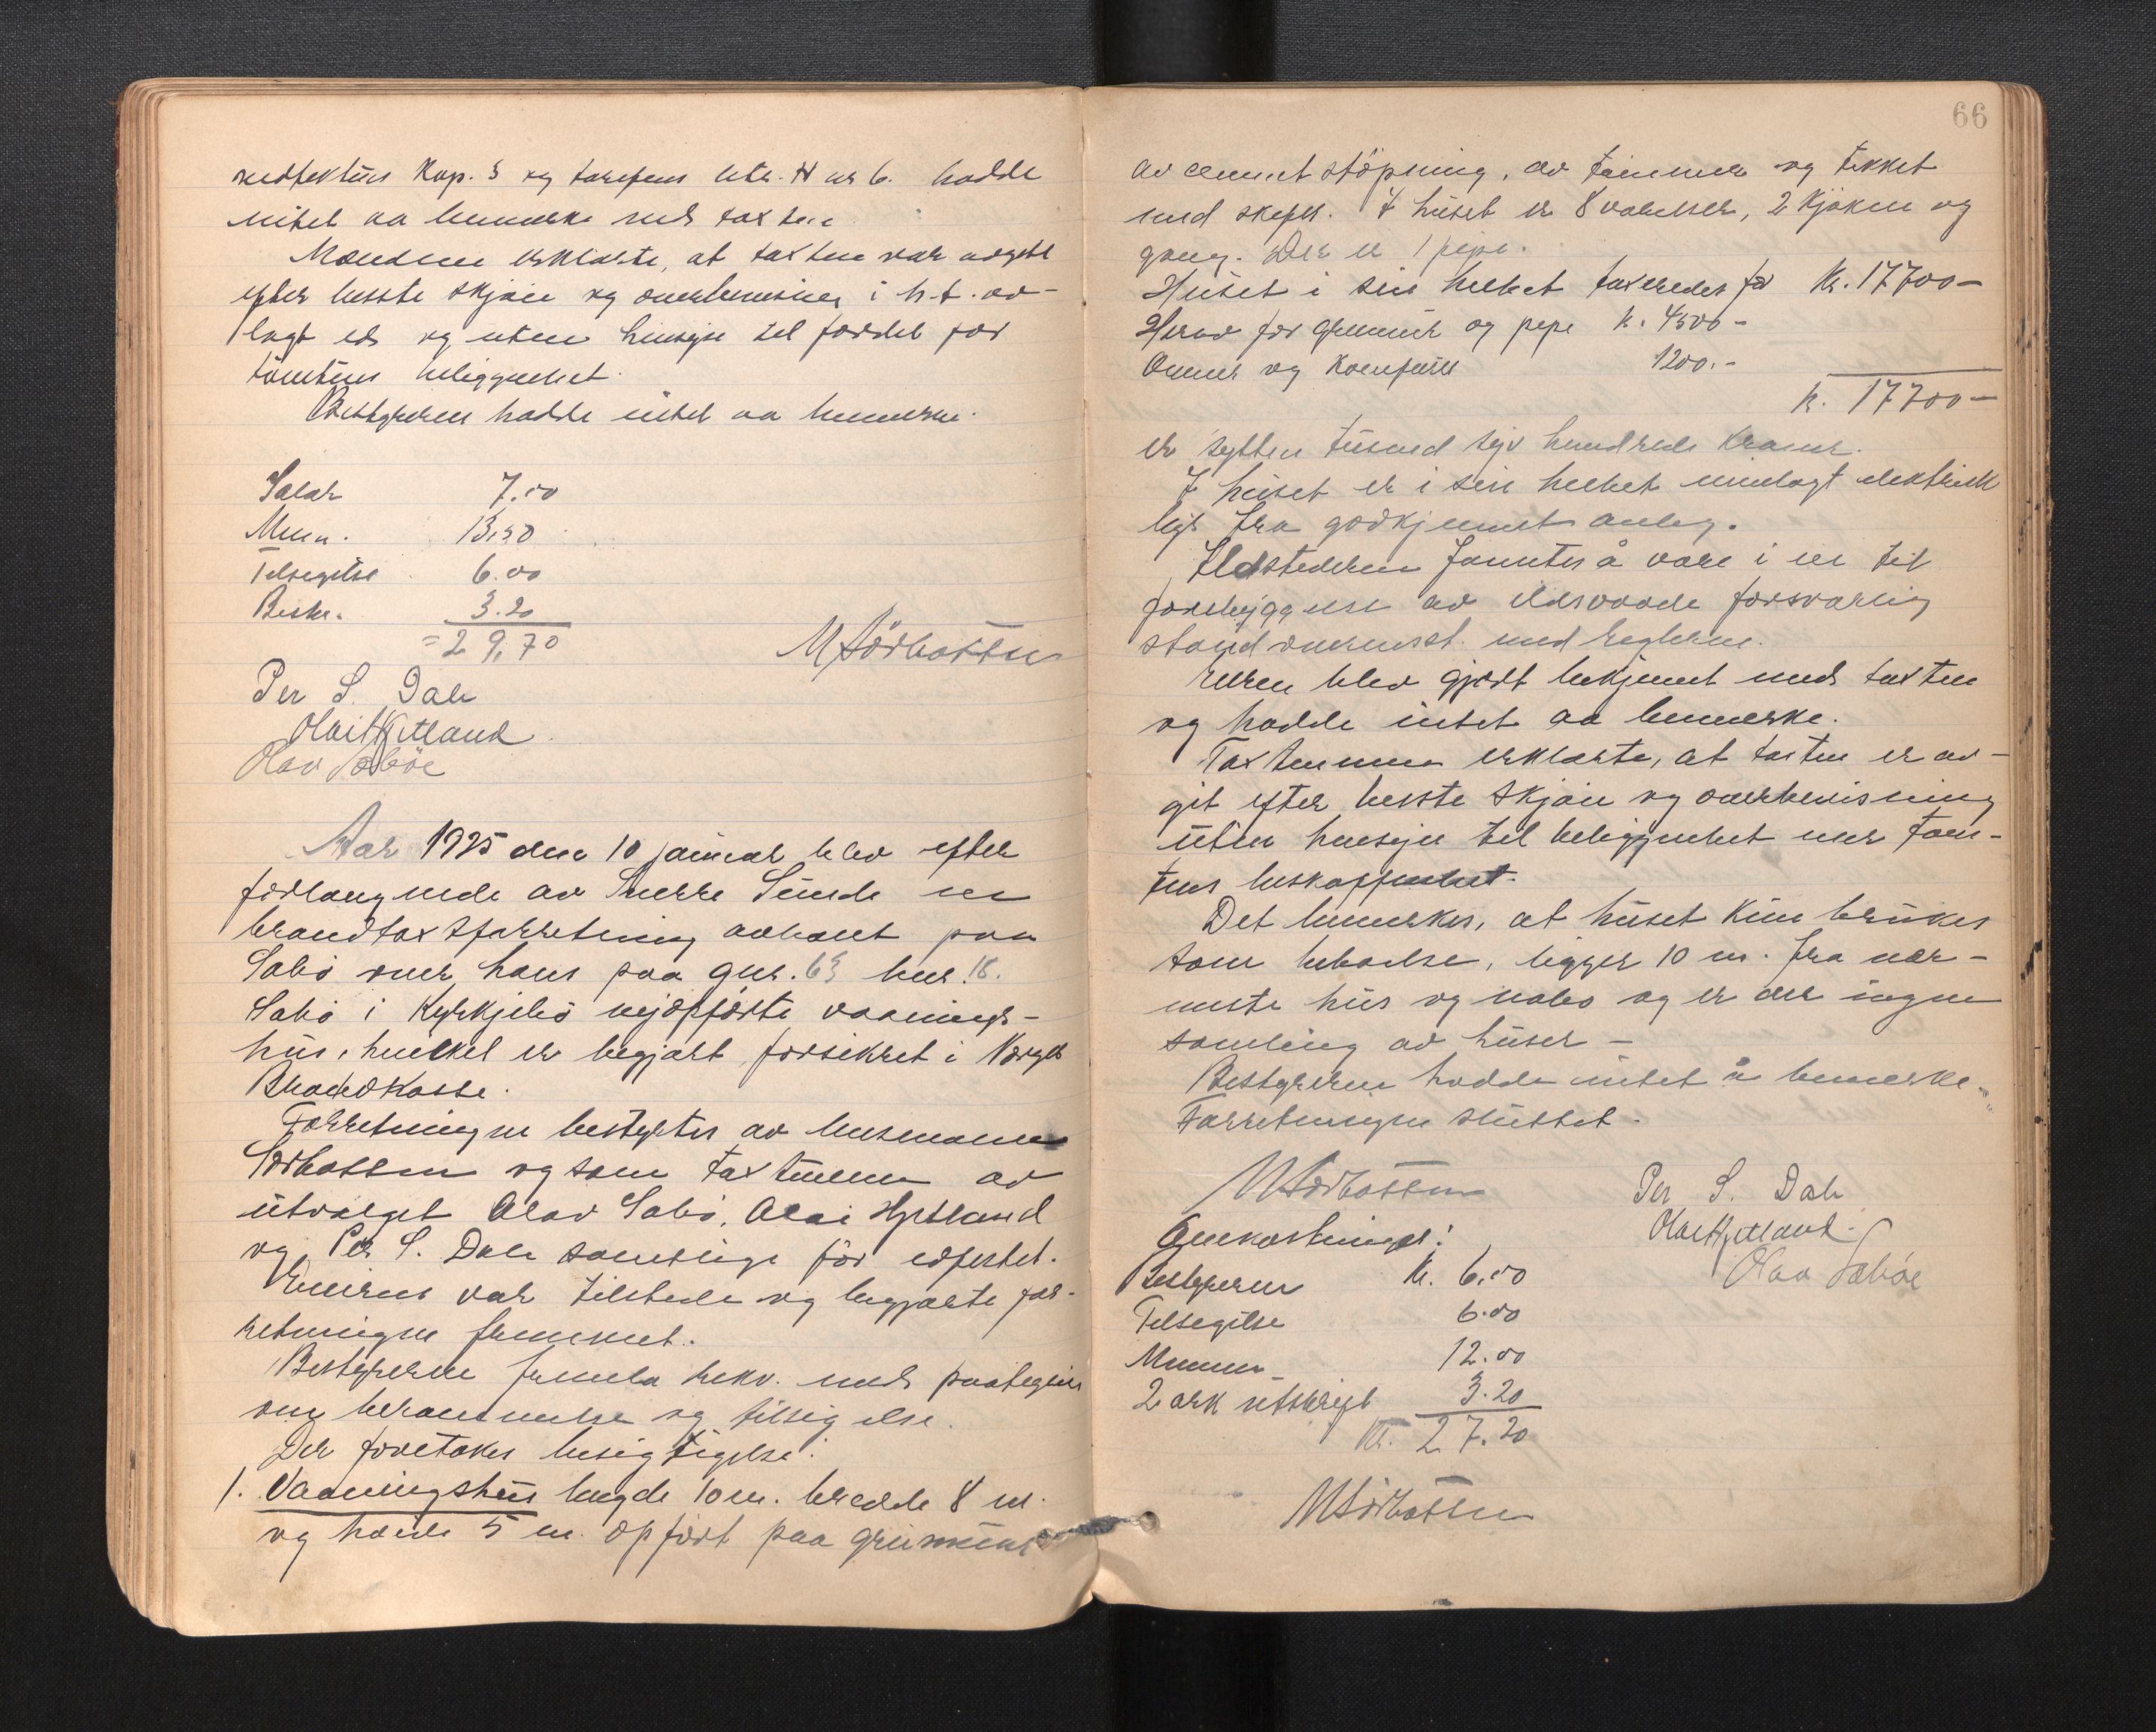 vedtektens Kap. 3 og tarifens litr. H nr 6. hadde
intet aa bemerke ved taxten
Mændene erklærte, at taxten var avgitt
efter beste skjøn og overbevisning i h.t. av-
lagt ed og uten hensyn til fordel for
tomtens beliggenhet.
Bestyreren hadde intet aa bemerke.
Salær 7.00
Menn. 13,50
Tilsigelse 6.00
Beskr. 3.20
= 29,70
M Sørbotten
Per S. Dale
Olai Hjetland
Olav Sæbøe
Aar 1925 den 10 januar blev efter
forlangende av Sverre Sunde en
brandtaxtforretning avholdt paa
Sæbø over hans paa gnr. 63 bnr. 18.
Sæbø i Kyrkjebø nyopførte vaanings-
hus, hvilket er begjært forsikret i Norges
Brandkasse.
Forretningen bestyrtes av lensmann
Sørbotten og som taxtmenn av
utvalget Olav Sæbø, Olai Hjetland
og Per S. Dale samtlige før edfestet.
Eieren var tilstede og begjærte for-
retningen fremmet.
Bestyreren fremla rekv. med paategnin
om berammelse og tilsigelse.
Der foretokes besigtigelse:
1. Vaaningshus lengde 10 m. bredde 8 m.
og høide 5 m. opført paa grunnmur
66
av cementstøpning, av tømmer og tekket
med skifer. I huset er 8 værelser, 2 kjøken og
gang. Der er 1 pipe.
Huset i sin helhet taxeredes for Kr. 17700 —
Herav for grunmur og pipe k. 4500 -
Ovner og komfurer 1200. -
k. 17700 —
er sytten tusend syv hundrede kroner.
I huset er i sin helhet innlagt elektrisk
lys fra godkjennet anleg.
Ildstederne fanntes å være i en til
forebyggelse av ildsvaade forsvarlig
stand overensst. med reglerne.
Eieren blev gjort bekjent med taxten
og hadde intet aa bemerke.
Taxtmennene erklærte, at taxten er av-
git efter beste skjøn og overbevisning
uten hensyn til beliggenhet eller tom-
tens beskaffenhet.
Det bemerkes, at huset kun brukes
som bebœlse, ligger 10 m. fra nær-
meste hus og nabo og er der ingen
samling av huser —
Bestyreren hadde intet å bemerke.
Forretningen sluttet.
M Sørbotten
Per S. Dale
Olai Hjetland.
Olav Sæbøe
Omkostninger:
Bestyreren Kr. 6,00
Tilsigelse 6.00
Mennene 12.00
2 ark utskrift 3.20
Kr. 27.20
M Sørbotten